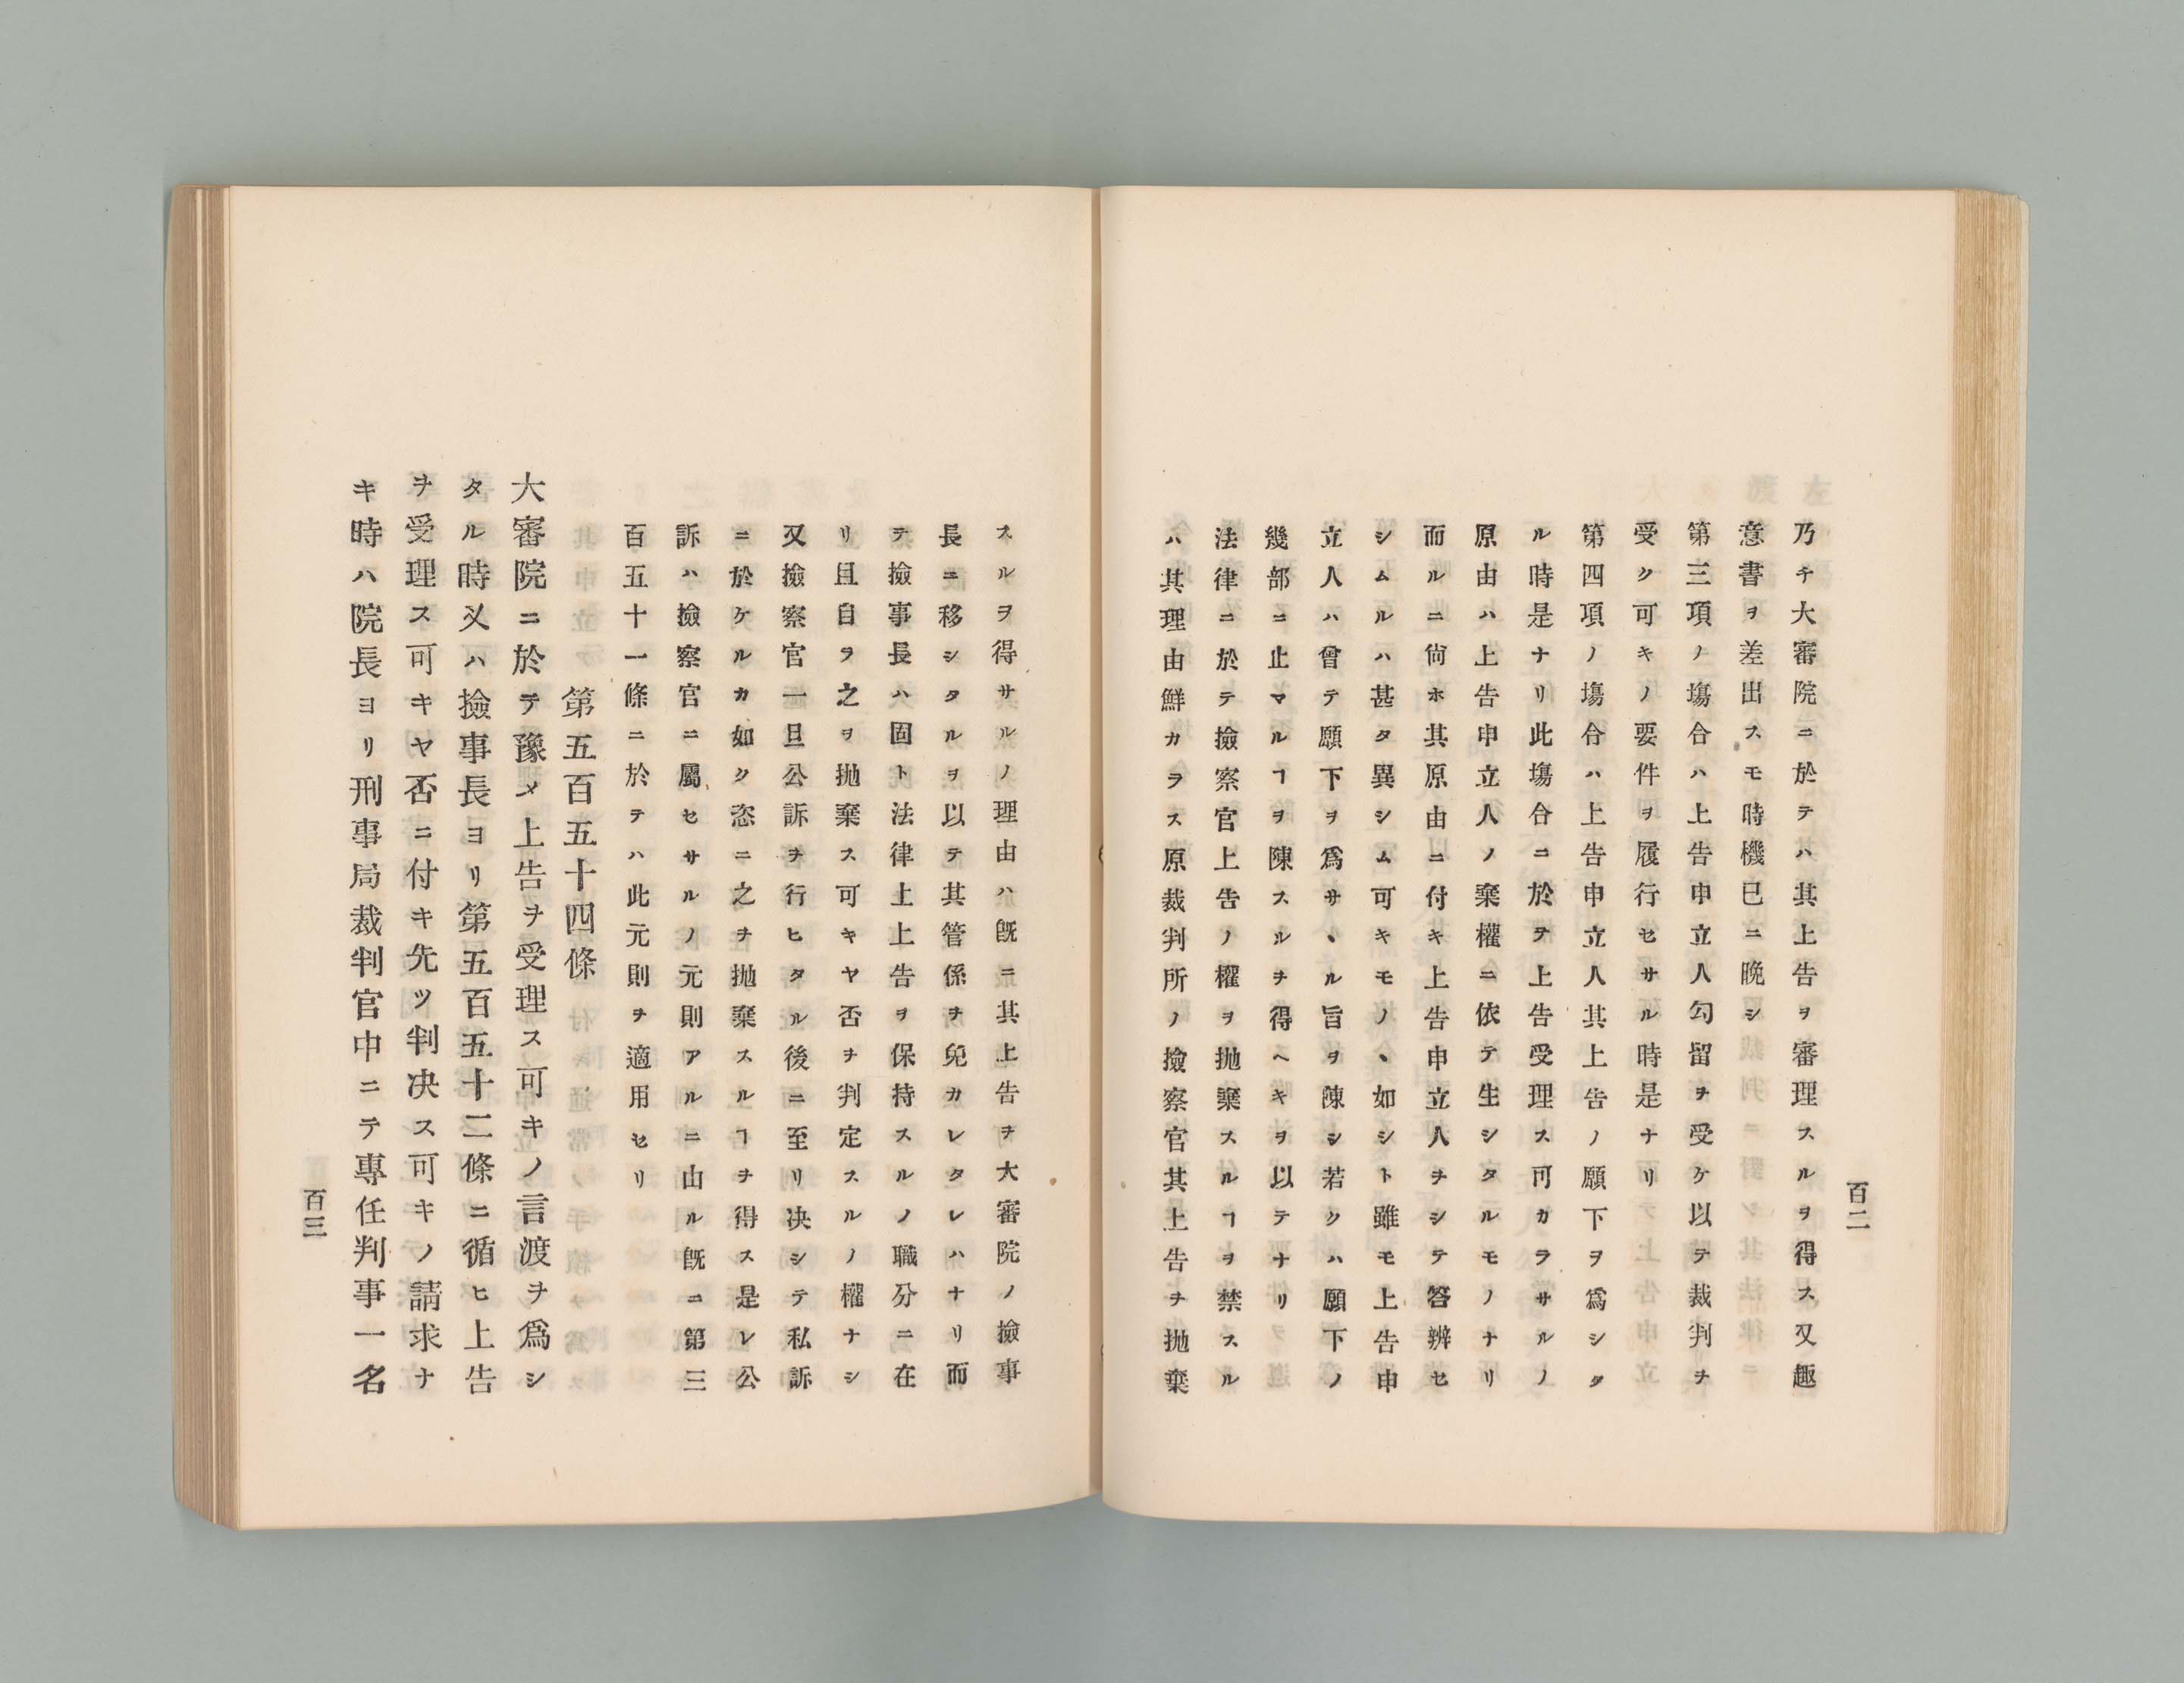 百二
乃チ大審院ニ於テハ其上告ヲ審理スルヲ得ス又趣
意書ヲ差出スモ時機已ニ晩シ
第三項ノ塲合ハ上告申立人勾留ヲ受ケ以テ裁判ヲ
受ク可キノ要件ヲ履行セサル時是ナリ
第四項ノ塲合ハ上告申立人其上告ノ願下ヲ爲シタ
ル時是ナリ此塲合ニ於テ上告受理ス可カラサルノ
原由ハ上告申立人ノ棄權ニ依テ生シタルモノナリ
而ルニ尙ホ其原由ニ付キ上告申立人ヲシテ答辨セ
シムルハ甚タ異シム可キモノヽ如シト雖モ上告申
立人ハ曾テ願下ヲ爲サヽル旨ヲ陳シ若クハ願下ノ
幾部ニ止マルヿヲ陳スルヲ得ヘキヲ以テナリ
法律ニ於テ撿察官上告ノ權ヲ抛棄スルヿヲ禁スル
ハ其理由鮮カラス原裁判所ノ撿察官其上告ヲ抛棄
スルヲ得サルノ理由ハ旣ニ其上告ヲ大審院ノ撿事
長ニ移シタルヲ以テ其管係ヲ免カレタレハナリ而
テ撿事長ハ固ト法律上上告ヲ保持スルノ職分ニ在
リ且自ラ之ヲ抛棄ス可キヤ否ヲ判定スルノ權ナシ
又撿察官一旦公訴ヲ行ヒタル後ニ至リ决シテ私訴
ニ於ケルカ如ク恣ニ之ヲ抛棄スルヿヲ得ス是レ公
訴ハ撿察官ニ屬セサルノ元則アルニ由ル旣ニ第三
百五十一條ニ於テハ此元則ヲ適用セリ
第五百五十四條
大審院ニ於テ豫メ上告ヲ受理ス可キノ言渡ヲ爲シ
タル時又ハ撿事長ヨリ第五百五十二條ニ循ヒ上告
ヲ受理ス可キヤ否ニ付キ先ツ判决ス可キノ請求ナ
キ時ハ院長ヨリ刑事局裁判官中ニテ專任判事一名
百三